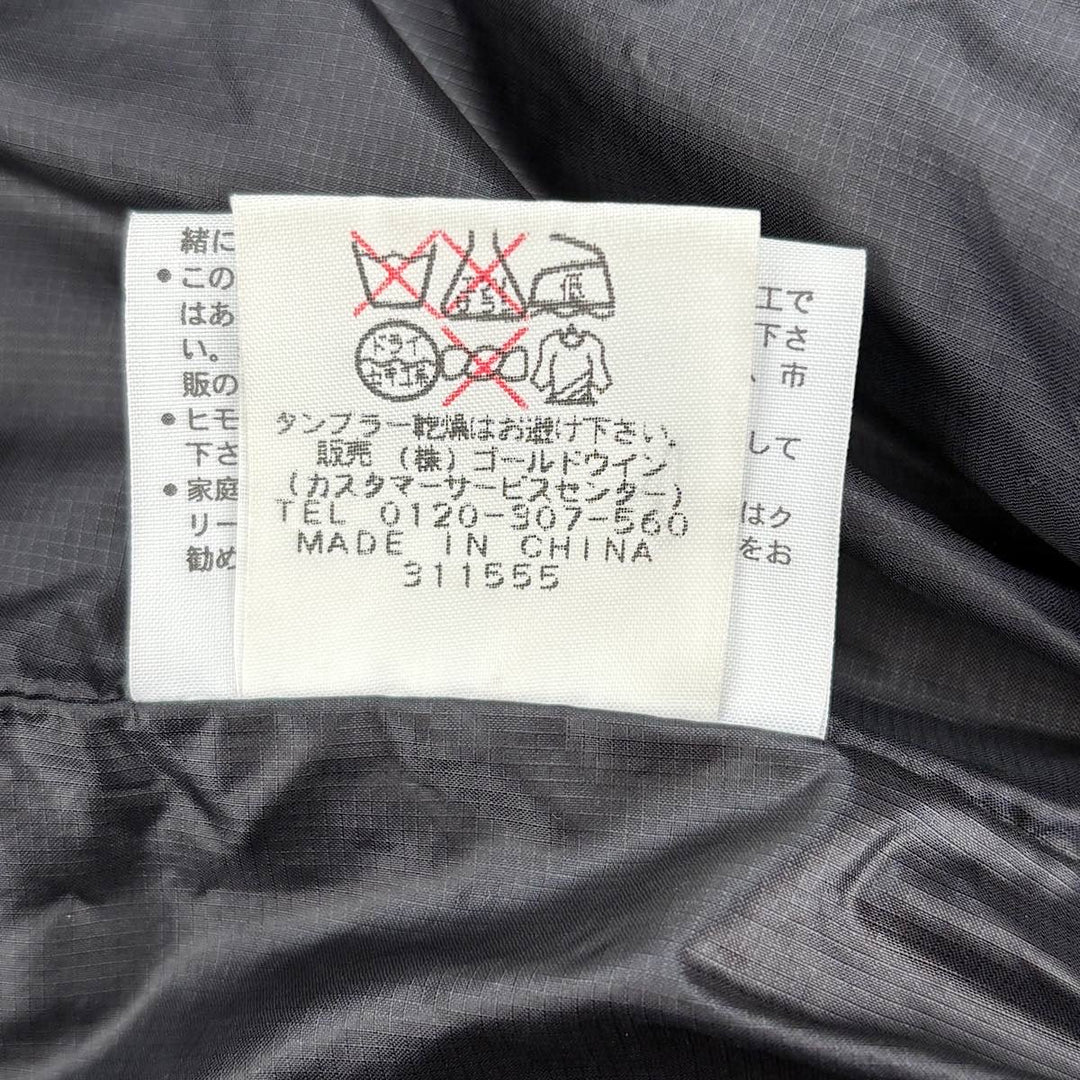 低
ドライ
タンブラー乾燥はお避け下さい。
販売 (株)ゴールドウイン
(カスタマーサービスセンター)
TEL 0120-307-560
MADE IN CHINA
311555
緒に
•この
はあ
い。
販の
•ヒモ
下さ
•家庭
リー
勧め
工で
下さ
、市
して
はク
をお